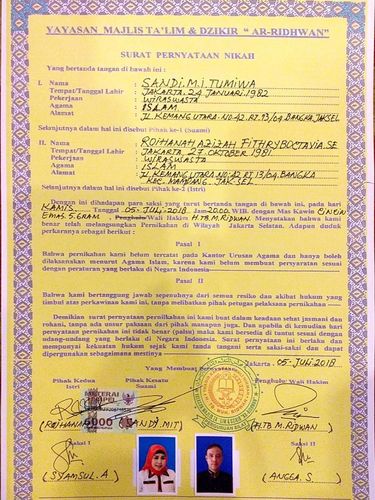 YAYASAN MAJLIS TA'LIM & DZIKIR " AR-RIDHWAN"
SURAT PERNYATAAN NIKAH
Yang bertanda tangan di bawah ini :
I. Nama : SANDI.M.I.TUMIWA
Tempat/Tanggal Lahir : JAKARTA. 24 JANUARI. 1982
Pekerjaan : WIRASWASTA
Agama : ISLAM
Alamat : JL. KEMANG UTARA. NO 42. RT. 13/04. BANGKA JAKSEL
Selanjutnya dalam hal ini disebut Pihak ke-1 (Suami)
II. Nama : ROIHANAH AZIZAH FITHRYBOCTAVIA.SE
Tempat/Tanggal Lahir : JAKARTA, 27. OKTOBER. 1981
Pekerjaan : WIRASWASTA
Agama : ISLAM
Alamat : JL KEMANG UTARA NO 42 RT. 13/04. BANGKA
KEC. MAMPANG. JAK-SEL.
Selanjutnya dalam hal ini disebut Pihak ke-2 (Istri)
Dengan ini dihadapan para saksi yang turut bertanda tangan di bawah ini, pada hari
KAMIS Tanggal 05-JULI-2018 Jam 2000. WIB. dengan Mas Kawin CINCIN
EMAS. 5. GRAM. Wali Hakim H.TB.M.RIDWAN Menyatakan bahwa kami
benar telah melangsungkan Pernikahan di Wilayah Jakarta Selatan. Adapun duduk
perkaranya sebagai berikut :
Pasal I
Bahwa pernikahan kami belum tercatat pada Kantor Urusan Agama dan hanya boleh
dilaksanakan menurut Agama Islam, karena kami belum membuat persyaratan sesuai
dengan peraturan yang berlaku di Negara Indonesia
Pasal II
Bahwa kami bertanggung jawab sepenuhnya dari semua resiko dan akibat hukum yang
timbul atas perkawinan kami ini, tanpa melibatkan pihak petugas pelaksana pernikahan
Demikian surat pernyataan pernikahan ini kami buat dalam keadaan sehat jasmani dan
rohani, tanpa ada unsur paksaan dari pihak manapun juga. Dan apabila di kemudian hari
pernyataan pernikahan ini tidak benar (palsu) maka kami bersedia di tuntut sesuai dengan
undang-undang yang berlaku di Negara Indonesia. Surat pernyataan ini berlaku dan
mempunyai kekuatan hukum sejak kami tanda tangani serta saksi-saksi dan dapat
dipergunakan sebagaimana mestinya
Jakarta 05-JULI-2018
Yang Membuat Pernyataan
Pihak Kedua
Istri
Pihak Kesatu
Suami
Penghulu/Wali Hakim
METERAI
TEMPEL
6000
(ROIHANAH
(SANDI.MIT)
(H.TB.M.RIDWAN)
Saksi I
Saksi II
(SYAMSUL.A)
(ANGGA.S.)